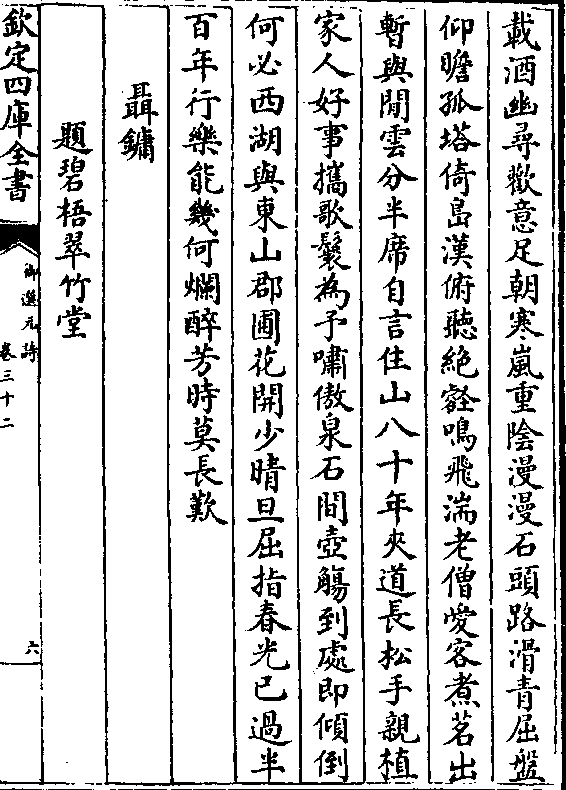 載酒幽尋歡意足朝寒嵐重陰漫漫石頭路滑青屈盤
仰瞻孤塔倚島漢俯聽絶壑鳴飛湍老僧愛客煮茗出
暫與閒雲分半席自言住山八十年夾道長松手親植
家人好事攜歌鬟為予嘯傲泉石間壺觴到處即傾倒
何必西湖與東山郡圃花開少晴旦屈指春光已過半
百年行樂能幾何爛醉芳時莫長歎
聶鏞
題碧梧翠竹堂
欽定四庫全書
御選元詩
卷三十二
六